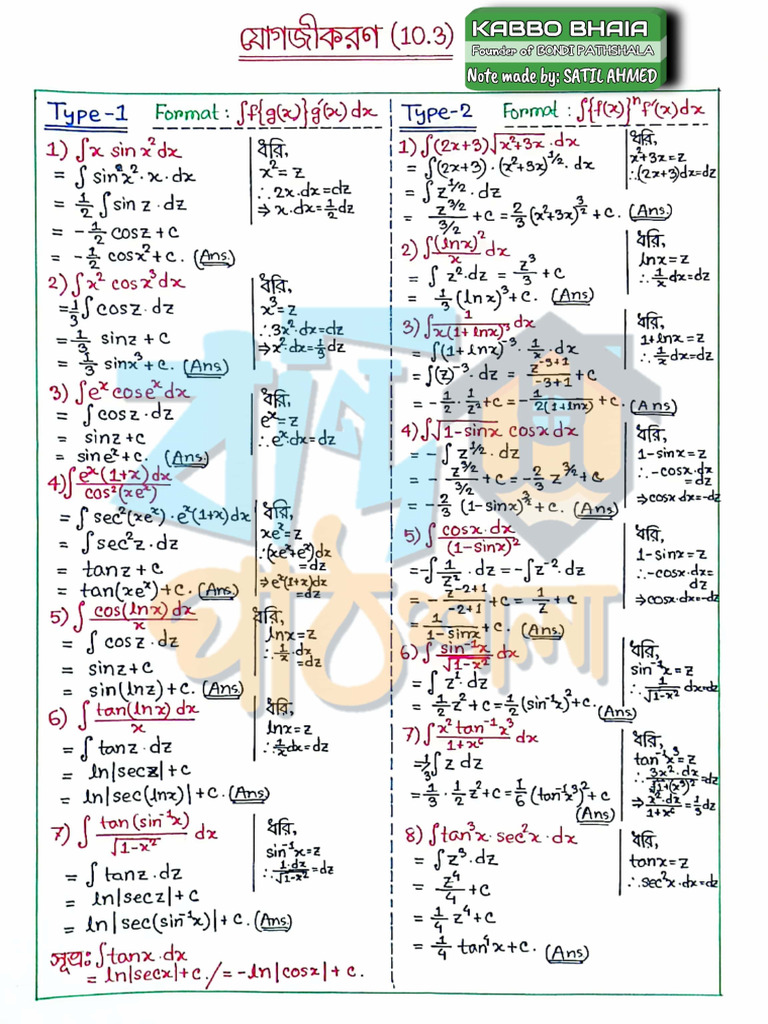 যোগজীকরণ (10.3)
KABBO BHAIA
Founder of BONDI PATHSHALA
Note made by: SATIL AHMED
Type-1 Format: ∫f{g(x)}g′(x)dx
1) ∫x sin x²dx
= ∫sin x²·x·dx
= 1/2 ∫sin z·dz
= -1/2 cosz + c
= -1/2 cosx² + c. (Ans.)
ধরি,
x² = z
∴ 2x·dx = dz
⇒ x·dx = 1/2 dz
2) ∫x² cosx³dx
= 1/3 ∫cosz·dz
= 1/3 sinz + c
= 1/3 sinx³ + c. (Ans)
ধরি,
x³ = z
∴ 3x²·dx = dz
⇒ x²·dx = 1/3 dz
3) ∫eˣ coseˣ dx
= ∫cosz·dz
= sinz + c
= sineˣ + c. (Ans)
ধরি,
eˣ = z
∴ eˣ·dx = dz
4) ∫eˣ(1+x)dx/cos²(xeˣ)
= ∫sec²(xeˣ)·eˣ(1+x)dx
= ∫sec²z·dz
= tanz + c
= tan(xeˣ) + c. (Ans)
ধরি,
xeˣ = z
∴ (xeˣ+eˣ)dx
= dz
⇒ eˣ(1+x)dx
= dz
5) ∫cos(lnx)dx/x
= ∫cosz·dz
= sinz + c
= sin(lnz) + c. (Ans)
ধরি,
lnx = z
∴ 1/x·dx
= dz
6) ∫tan(lnx)dx/x
= ∫tanz·dz
= ln|secz| + c
= ln|sec(lnx)| + c. (Ans)
ধরি,
lnx = z
∴ 1/x dx = dz
7) ∫tan(sin⁻¹x)/√(1-x²) dx
= ∫tanz·dz
= ln|secz| + c
= ln|sec(sin⁻¹x)| + c. (Ans)
ধরি,
sin⁻¹x = z
∴ 1·dx/√(1-x²) = dz
সূত্র: ∫tanx·dx
= ln|secx| + c. / = -ln|cosx| + c.
Type-2 Format: ∫{f(x)}ⁿ f′(x)dx
1) ∫(2x+3)√(x²+3x)·dx
= ∫(2x+3)·(x²+3x)^1/2·dx
= ∫z^1/2·dz
= z^3/2/3/2 + c = 2/3 (x²+3x)^3/2 + c. (Ans)
ধরি,
x²+3x = z
∴ (2x+3)dx = dz
2) ∫(lnx)²/x dx
= ∫z²·dz = z³/3 + c
= 1/3 (lnx)³ + c. (Ans)
ধরি,
lnx = z
∴ 1/x dx = dz
3) ∫1/x(1+lnx)³ dx
= ∫(1+lnx)⁻³·1/x·dx
= ∫(z)⁻³·dz = z⁻³⁺¹/-3+1 + c
= -1/2·1/z² + c = -1/2(1+lnx) + c. (Ans)
ধরি,
1+lnx = z
∴ 1/x dx = dz
4) ∫√(1-sinx) cosx dx
= -∫z^1/2·dz
= -z^3/2/3/2 + c = -2/3 z^3/2 + c
= -2/3 (1-sinx)^3/2 + c. (Ans)
ধরি,
1-sinx = z
∴ -cosx·dx
= dz
⇒ cosx dx = -dz
5) ∫cosx·dx/(1-sinx)²
= -∫1/z²·dz = -∫z⁻²·dz
= -z⁻²⁺¹/-2+1 + c = 1/z + c
= 1/1-sinx + c. (Ans)
ধরি,
1-sinx = z
∴ -cosx·dx =
dz
⇒ cosx·dx = -dz
6) ∫sin⁻¹x/√(1-x²) dx
= ∫z¹·dz
= 1/2 z² + c = 1/2 (sin⁻¹x)² + c.
(Ans)
ধরি,
sin⁻¹x = z
∴ 1/√(1-x²) dx = dz
7) ∫x² tan⁻¹x³/1+x⁶ dx
= 1/3 ∫z dz
= 1/3·1/2 z² + c = 1/6 (tan⁻¹x³)² + c
(Ans)
ধরি,
tan⁻¹x³ = z
∴ 3x²·dx/√1+(x³)² = dz
⇒ x²·dx/1+x⁶ = 1/3 dz
8) ∫tan³x·sec²x·dx
= ∫z³·dz
= z⁴/4 + c
= 1/4 z⁴ + c
= 1/4 tan⁴x + c. (Ans)
ধরি,
tanx = z
∴ sec²x·dx = dz
বন্দি
পাঠশালা